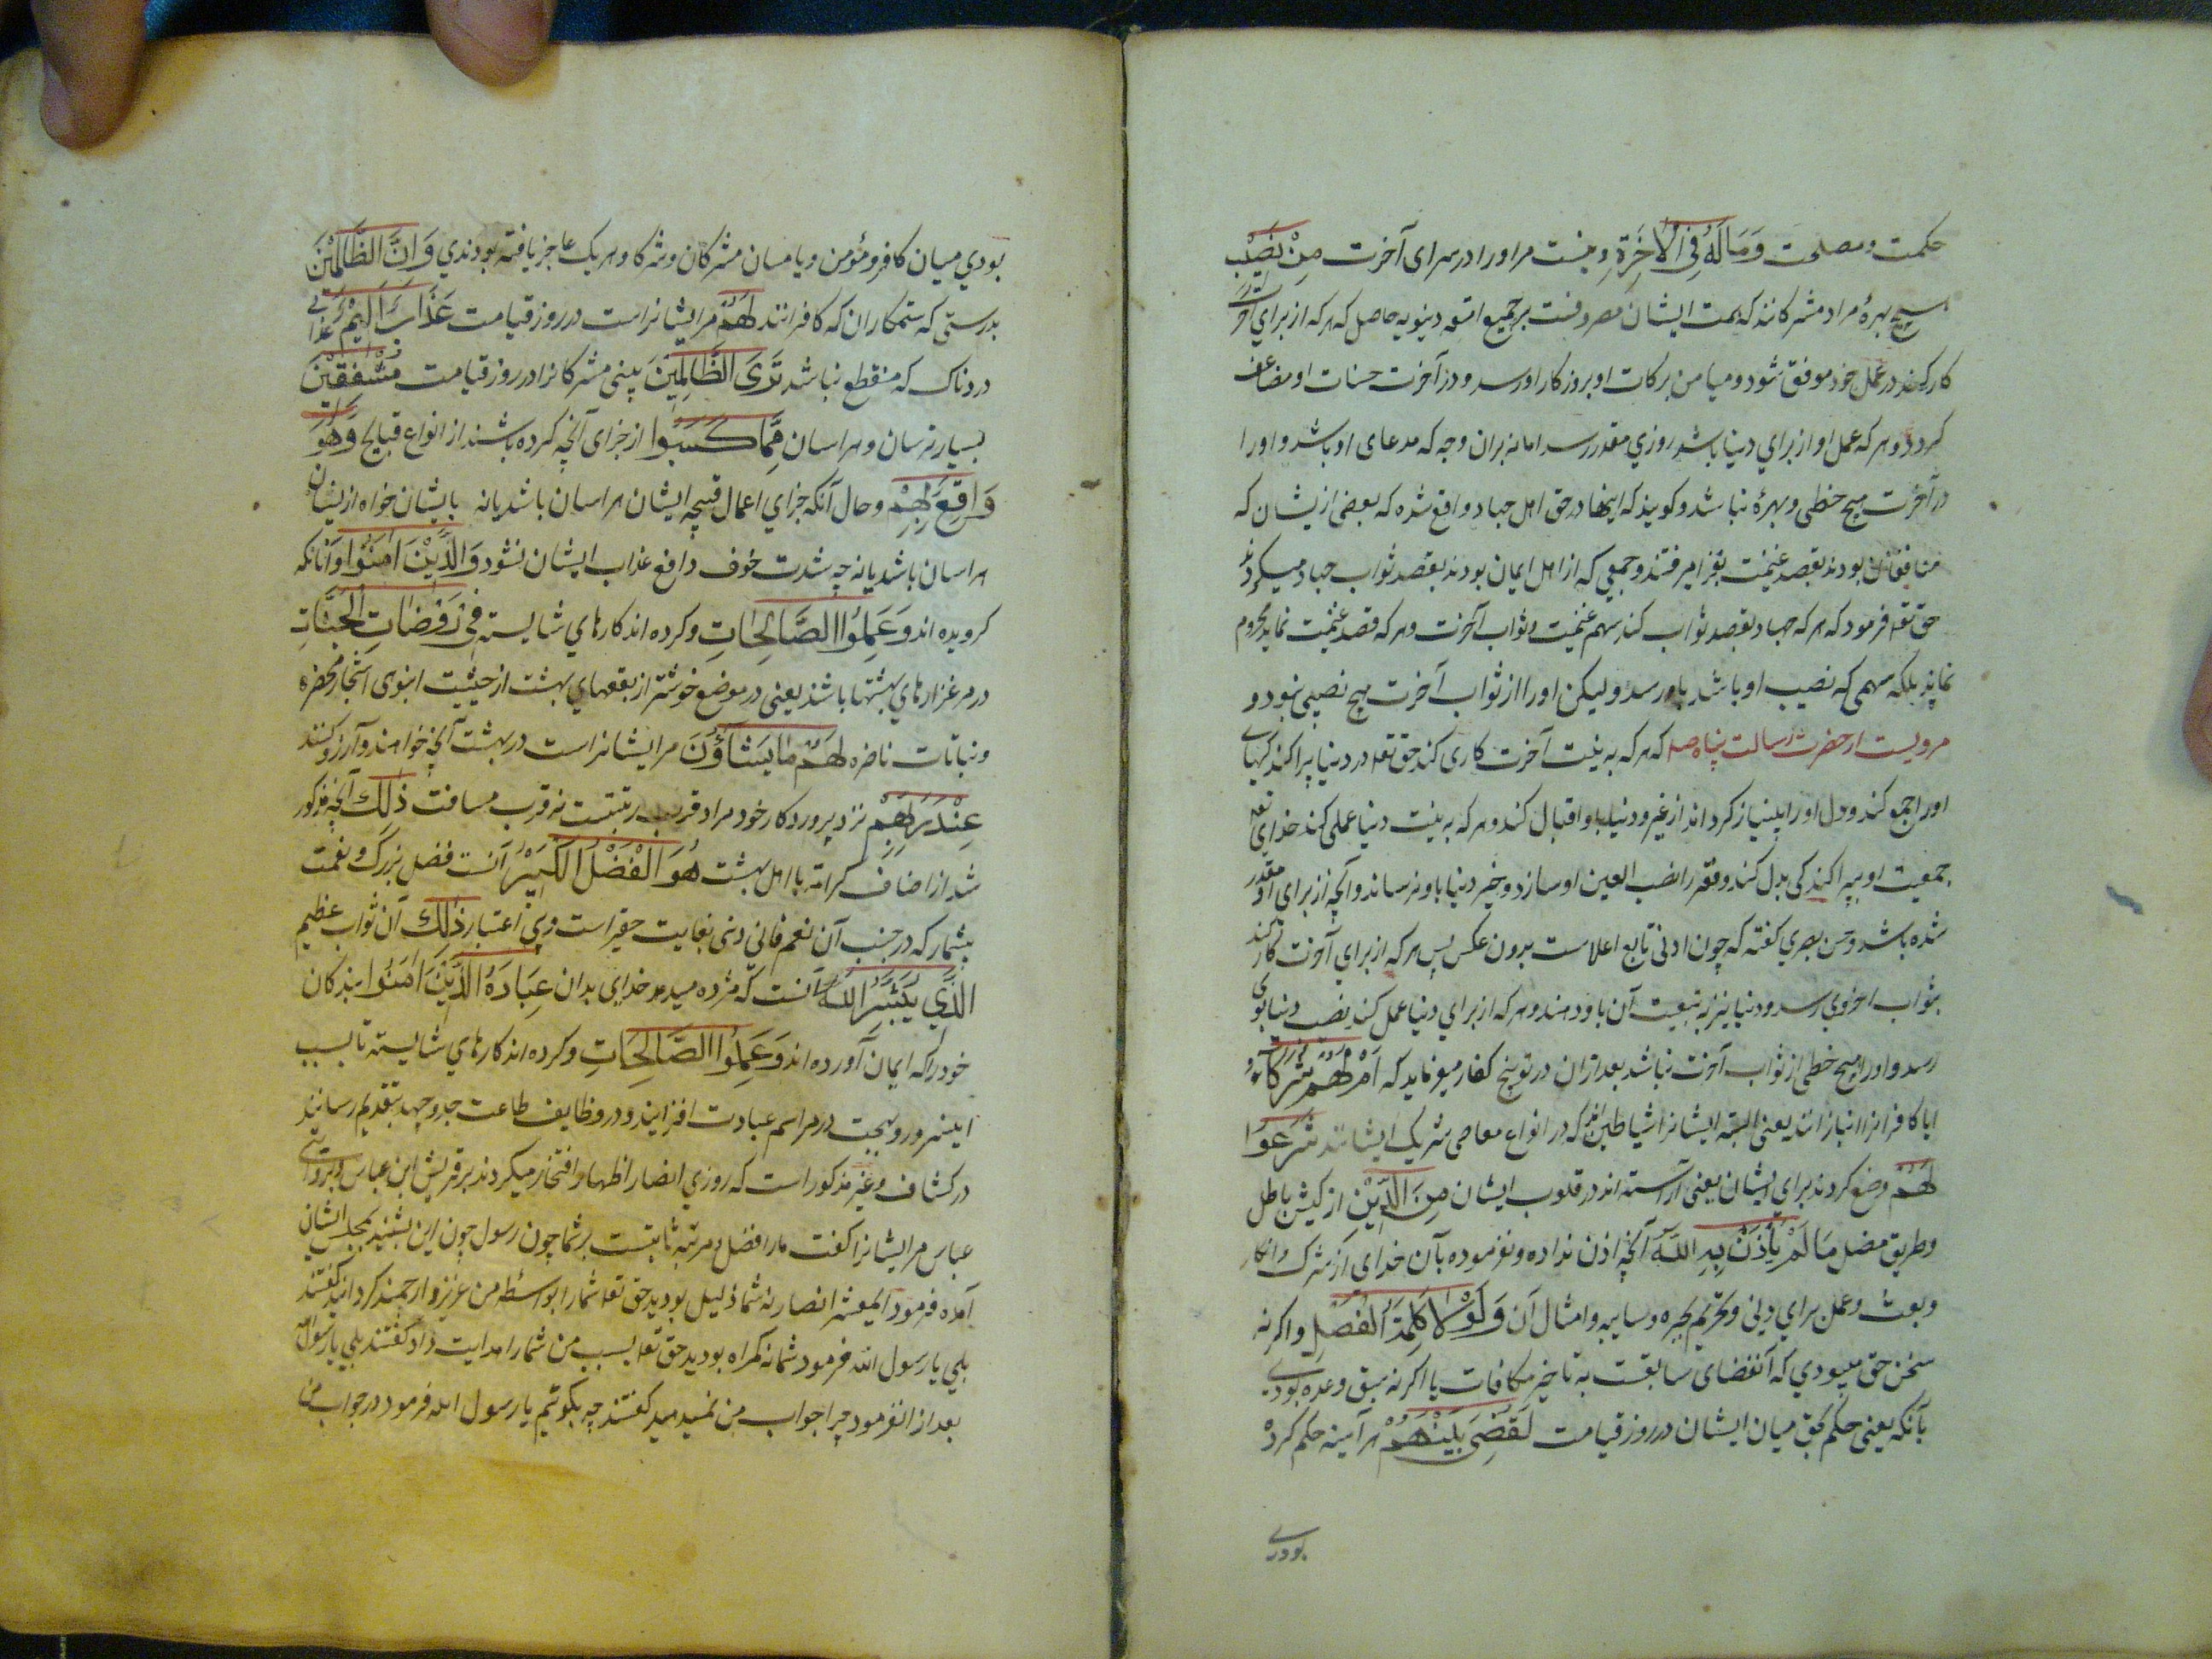 حکمت و مصلحت وَمَالَهُ فِی الْاٰخِرَةِ و نیست مر او را در سرای آخرت مِنْ نَصِیْبٍ
هیچ بهرهٔ مراد مشرکانند که همت ایشان مصروفست بر جمیع امتعه دنیویه حاصل که هر که از برای آخرت
کار کند در عمل خود موفق شود و میامن برکات او بروزکار او رسد و در آخرت حسنات او مضاعف
کردد و هر که عمل او از برای دنیا باشد روزی مقدر رسد اما نه بران وجه که مدعای او باشد و او را
در آخرت هیچ حظی و بهرهٔ نباشد و کویند که اینها در حق اهل جهاد واقع شده که بعضی ازیشان که
منافقان بودند بقصد غنیمت بغزا میرفتند و جمعی که از اهل ایمان بودند بقصد ثواب جهاد میکردند
حق تعه فرمود که هر که جهاد بقصد ثواب کند سهم غنیمت و ثواب آخرت و هر که قصد غنیمت نماید محروم
نماند بلکه سهمی که نصیب او باشد باو رسد و لیکن او را از ثواب آخرت هیچ نصیبی نبود و
مرویست از حضرت رسالت پناه صلعم که هر که به نیت آخرت کاری کند حق تعه در دنیا پراکندکیهای
او را جمع کند و دل او را بینیاز کرداند از غیر و دنیا باو اقبال کند و هر که به نیت دنیا عملی کند خدای تعه
جمعیت او بپراکندکی بدل کند و فقر را نصب العین او سازد و خیر دنیا باو نرساند و آنچه از برای او مقدر
شده باشد و حسن بصری کفته که چون ادنی تابع اعلاست بدون عکس پس هر که از برای آخرت کار کند
بثواب اخروی رسد و دنیا نیز به تبعیت آن باو دهند و هر که از برای دنیا عمل کند نصیب دنیا بوی
رسد و او را هیچ حظی از ثواب آخرت نباشد بعد ازان در توبیخ کفار میفرماید که اَمْ لَهُمْ شُرَکَاءُ
ایا کافرانرا انبازانند یعنی البته ایشانرا شیاطین اند که در انواع معاصی شریک ایشانند شَرَعُوا
لَهُمْ وضع کردند برای ایشان یعنی آراسته اند در قلوب ایشان مِنَ الدِّیْنِ از کیش باطل
و طریق مضل مَا لَمْ یَأْذَنْ بِهِ اللّٰهُ آنچه اذن نداده و نفرموده بآن خدای از شرک و انکار
و بعث و عمل برای دنیی و تحریم بحیره و سایبه و امثال آن وَلَوْلَا کَلِمَةُ الْفَصْلِ و اکر نه
سخن حق میبودی که آنقضای سابقست به تاخیر مکافات یا اکر نه سبق وعده بودی
بآنکه یعنی حکم بحق میان ایشان در روز قیامت لَقُضِیَ بَیْنَهُمْ هر آینه حکم کرده
بودی
بودی میان کافر و مؤمن و یا میان مشرکان و شرکا و هر یک عاجز یافته بودندی وَاِنَّ الظَّالِمِیْنَ
بدرستی که ستمکاران که کافرانند لَهُمْ مر ایشانراست در روز قیامت عَذَابٌ اَلِیْمٌ عذابی
دردناک که منقطع نباشد تَرَی الظَّالِمِیْنَ بینی مشرکانرا در روز قیامت مُشْفِقِیْنَ
بسیار ترسان و هراسان مِمَّا کَسَبُوا از جزای آنچه کرده باشند از انواع قبایح وَهُوَ
وَاقِعٌ بِهِمْ و حال آنکه جزای اعمال قبیحه ایشان هراسان باشد یا نه بایشان خواه ازیشان
هراسان باشد یا نه چه شدت خوف دافع عذاب ایشان نشود وَالَّذِیْنَ اٰمَنُوا و آنانکه
کرویده اند وَعَمِلُوا الصَّالِحَاتِ و کرده اند کارهای شایسته فِی رَوْضَاتِ الْجَنَّاتِ
در مرغزارهای بهشتها باشند یعنی در موضع خوشتر از بقعهای بهشت از حیثیت انبوهی اشجار مخضره
و نباتات ناضره لَهُمْ مَا یَشَاؤُنَ مر ایشانراست در بهشت آنچه خواهند و آرزو کنند
عِنْدَ رَبِّهِمْ نزد پروردکار خود مراد قرب رتبتست نه قرب مسافت ذٰلِكَ آنچه مذکور
شد از اضاف کرامت با اهل بهشت هُوَ الْفَضْلُ الْکَبِیْرُ آنست فضل بزرک و نعمت
بیشمار که در جنب آن نعم فانی دنیی بغایت حقیر است و بی اعتبار ذٰلِكَ آن ثواب عظیم
الَّذِی یُبَشِّرُ اللّٰهُ آنست که مژده میدهد خدای بدان عِبَادَهُ الَّذِیْنَ اٰمَنُوا بندکان
خود را که ایمان آورده اند وَعَمِلُوا الصَّالِحَاتِ و کرده اند کارهای شایسته تا بسبب
این سرور و بهجت در مراسم عبادت افزایند و در وظایف طاعت جد و جهد بتقدیم رسانند
در کشاف و غیره مذکور است که روزی انصار اظهار افتخار میکردند بر قریش ابن عباس و بروایتی
عباس مر ایشانرا کفت ما را فضل و مرتبه ثابتست بر شما چون رسول چون این بشنید بمجلس ایشان
آمده فرمود ایمعشر انصار نه شما ذلیل بودید حق تعه شما را بواسطه من عزیز و ارجمند کردانید کفتند
بلی یا رسول الله فرمود شما نه کمراه بودید حق تعه بسبب من شما را هدایت داد کفتند بلی یا رسول الله
بعد از ان فرمود چرا جواب من نمیدهید کفتند چه بکوئیم یا رسول الله فرمود در جواب من